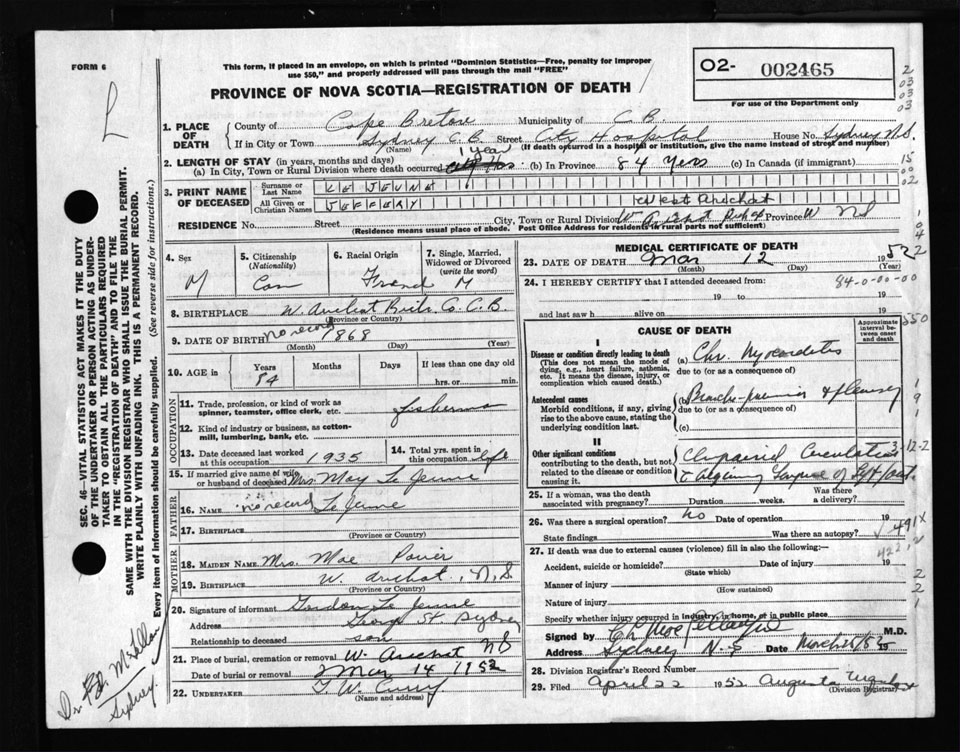 FORM 6
This form, if placed in an envelope, on which is printed "Dominion Statistics—Free, penalty for improper
use $50," and properly addressed will pass through the mail "FREE"
PROVINCE OF NOVA SCOTIA—REGISTRATION OF DEATH
O2- 002465
For use of the Department only
1. PLACE OF DEATH
County of Cape Breton Municipality of C.B.
If in City or Town Sydney C.B. Street City Hospital House No. Sydney N.S.
(Name) (If death occurred in a hospital or institution, give the name instead of street and number)
2. LENGTH OF STAY (in years, months and days) 1 year
(a) In City, Town or Rural Division where death occurred (b) In Province 84 years (c) In Canada (if immigrant)
3. PRINT NAME OF DECEASED
Surname or Last Name LE JEUNE
All Given or Christian Names JEFFERY
West Arichat
RESIDENCE No. Street City, Town or Rural Division W Arichat Province NS
(Residence means usual place of abode. Post Office Address for residents in rural parts not sufficient)
4. Sex M
5. Citizenship (Nationality) Can
6. Racial Origin
7. Single, Married, Widowed or Divorced (write the word) M
8. BIRTHPLACE W. Arichat
(Province or Country)
9. DATE OF BIRTH no record 1868
(Month) (Day) (Year)
10. AGE in Years 84 Months Days If less than one day
hrs. or min.
OCCUPATION
11. Trade, profession, or kind of work as spinner, teamster, office clerk, etc. fisherman
12. Kind of industry or business, as cotton-mill, lumbering, bank, etc.
13. Date deceased last worked at this occupation 1935
14. Total yrs. spent in this occupation life
15. If married give name of wife or husband of deceased Mrs. May Le Jeune
FATHER
16. NAME no record Le Jeune
17. BIRTHPLACE
(Province or Country)
MOTHER
18. MAIDEN NAME Mrs. Mae Poirier
19. BIRTHPLACE W. Arichat, N.S.
(Province or Country)
20. Signature of informant Gordon Le Jeune
Address George St Sydney
Relationship to deceased son NS
21. Place of burial, cremation or removal W. Arichat
Date of burial or removal Mar 14 1952
22. UNDERTAKER T. W. Curry
(Name and address)
MEDICAL CERTIFICATE OF DEATH
23. DATE OF DEATH Mar 12 1952
(Month) (Day) (Year)
24. I HEREBY CERTIFY that I attended deceased from: 84-0-00-00
19 to 19
and last saw h alive on 19
CAUSE OF DEATH
Approximate interval between onset and death
I
Disease or condition directly leading to death (a) Chr. Myocarditis
(This does not mean the mode of dying, e.g., heart failure, asthenia, etc. It means the disease, injury, or complication which caused death.)
due to (or as a consequence of)
Antecedent causes (b) Broncho-pneumonia & pleurisy
Morbid conditions, if any, giving rise to the above cause, stating the underlying condition last.
due to (or as a consequence of)
(c)
II
Other significant conditions contributing to the death, but not related to the disease or condition causing it. Impaired Circulation
25. If a woman, was the death associated with pregnancy? Duration weeks. Was there a delivery?
26. Was there a surgical operation? no Date of operation 19
State findings Was there an autopsy?
491X
27. If death was due to external causes (violence) fill in also the following:—
Accident, suicide or homicide? Date of injury 19
(State which)
Manner of injury
(How sustained)
Nature of injury
Specify whether injury occurred in industry, in home, or in public place
Signed by M.D.
Address Sydney N-S Date
28. Division Registrar's Record Number
29. Filed April 22 1952 Augusta
(Division Registrar)
SEC. 46—VITAL STATISTICS ACT MAKES IT THE DUTY
OF THE UNDERTAKER OR PERSON ACTING AS UNDER-
TAKER TO OBTAIN ALL THE PARTICULARS REQUIRED
IN THE "REGISTRATION OF DEATH" AND TO FILE THE
SAME WITH THE DIVISION REGISTRAR WHO SHALL ISSUE THE BURIAL PERMIT.
WRITE PLAINLY WITH UNFADING INK. THIS IS A PERMANENT RECORD.
Every item of information should be carefully supplied. (See reverse side for instructions.)
Sydney.